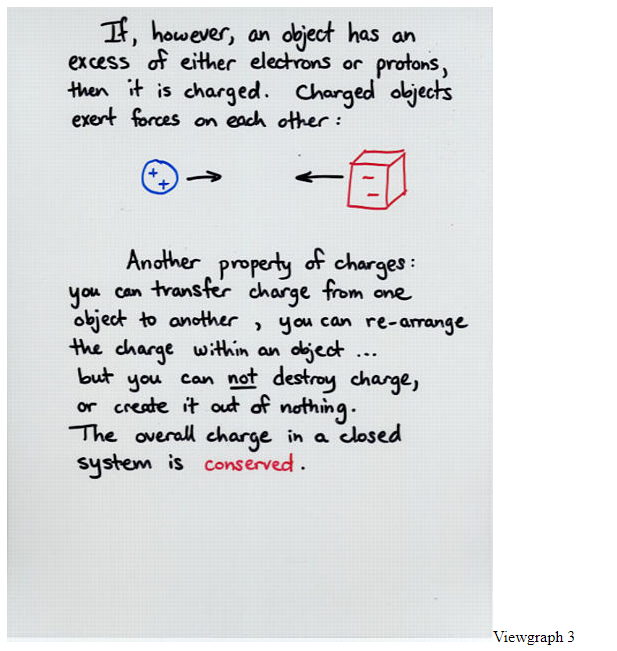 If, however, an object has an
excess of either electrons or protons,
then it is charged. Charged objects
exert forces on each other:
+
+
Another property of charges:
you can transfer charge from one
object to another, you can re-arrange
the charge within an object ...
but you can not destroy charge,
or create it out of nothing.
The overall charge in a closed
system is conserved.
Viewgraph 3